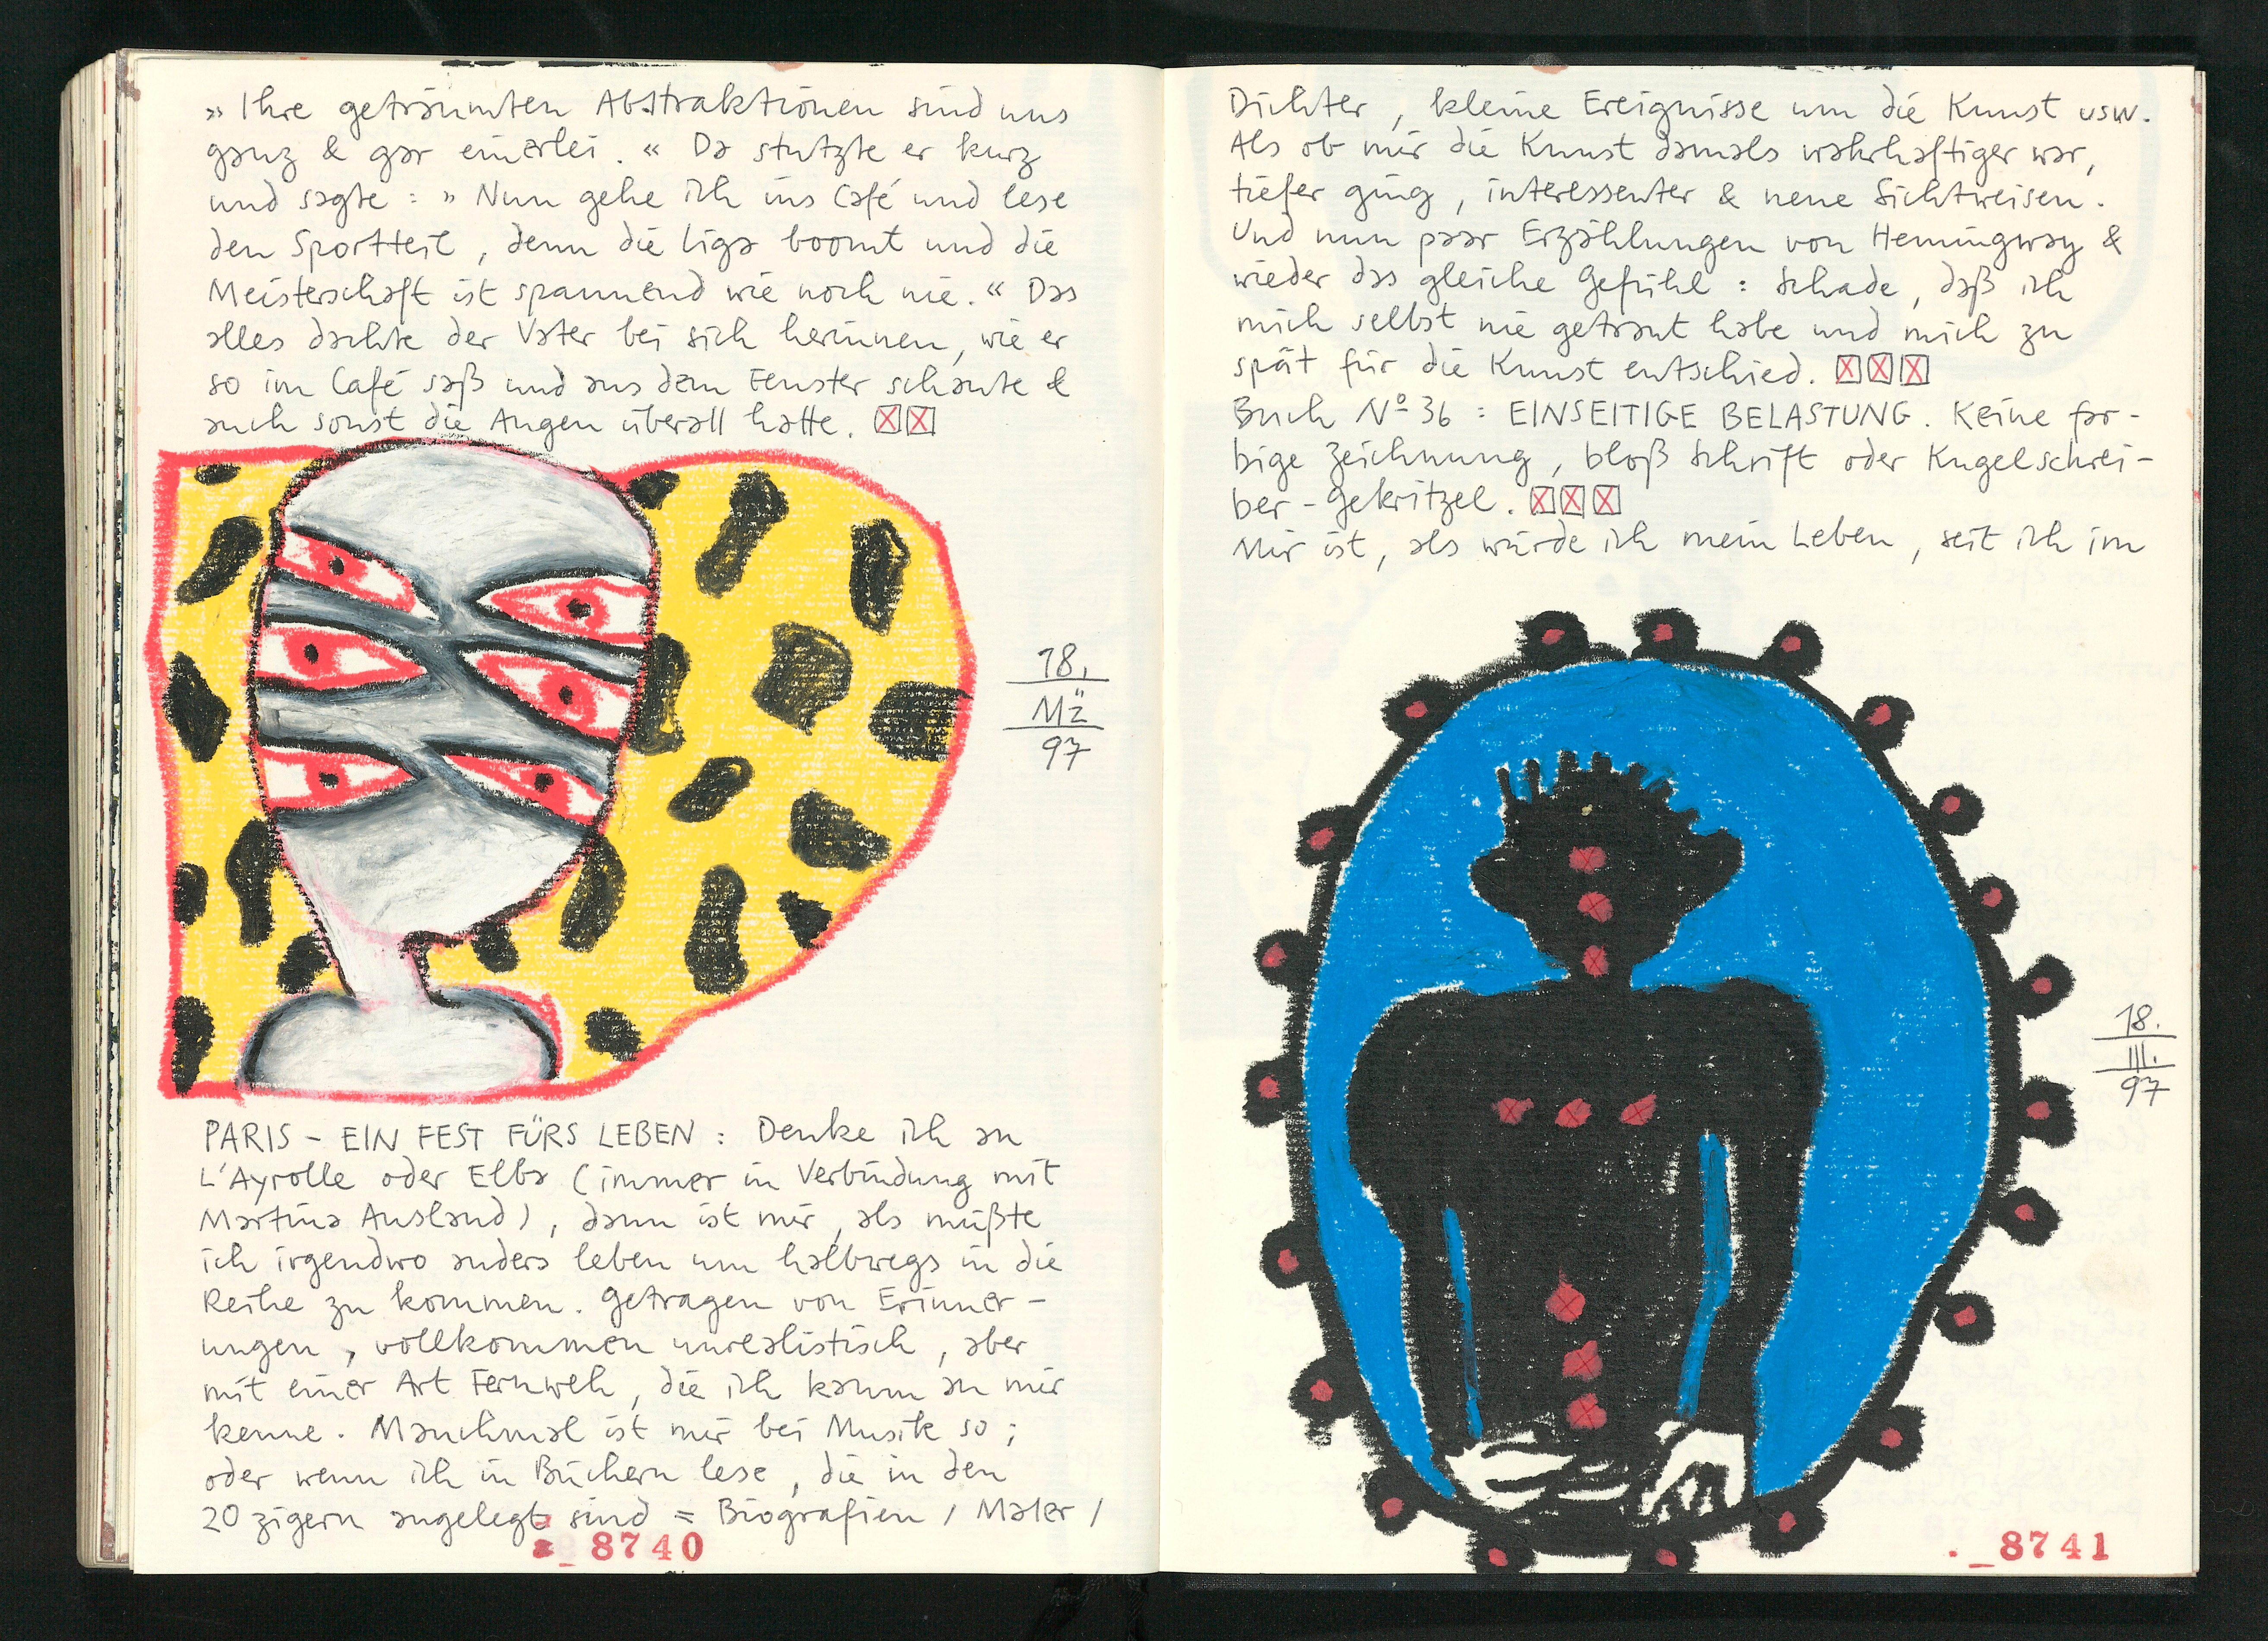 » Ihre geträumten Abstraktionen sind uns
ganz & gar einerlei. « Da stutzte er kurz
und sagte : » Nun gehe ich ins Café und lese
den Sportteil, denn die Liga boomt und die
Meisterschaft ist spannend wie noch nie. « Das
alles dachte der Vater bei sich herinnen, wie er
so im Café saß und aus dem Fenster schaute &
auch sonst die Augen überall hatte. ☒☒
18.
Mz
97
PARIS – EIN FEST FÜRS LEBEN : Denke ich an
L'Ayrolle oder Elba (immer in Verbindung mit
Martina Ausland), dann ist mir, als müßte
ich irgendwo anders leben um halbwegs in die
Reihe zu kommen. Getragen von Erinner-
ungen, vollkommen unrealistisch, aber
mit einer Art Fernweh, die ich kaum an mir
kenne. Manchmal ist mir bei Musik so;
oder wenn ich in Büchern lese, die in den
20zigern angelegt sind = Biografien / Maler /
8740
Dichter, kleine Ereignisse um die Kunst usw.
Als ob mir die Kunst damals wahrhaftiger war,
tiefer ging, interessenter & neue Sichtweisen.
Und nun paar Erzählungen von Hemingway &
wieder das gleiche Gefühl : Schade, daß ich
mich selbst nie getraut habe und mich zu
spät für die Kunst entschied. ☒☒☒
Buch Nº 36 : EINSEITIGE BELASTUNG. Keine far-
bige Zeichnung, bloß Schrift oder Kugelschrei-
ber-Gekritzel. ☒☒☒
Mir ist, als würde ich mein Leben, seit ich im
18.
III.
97
8741